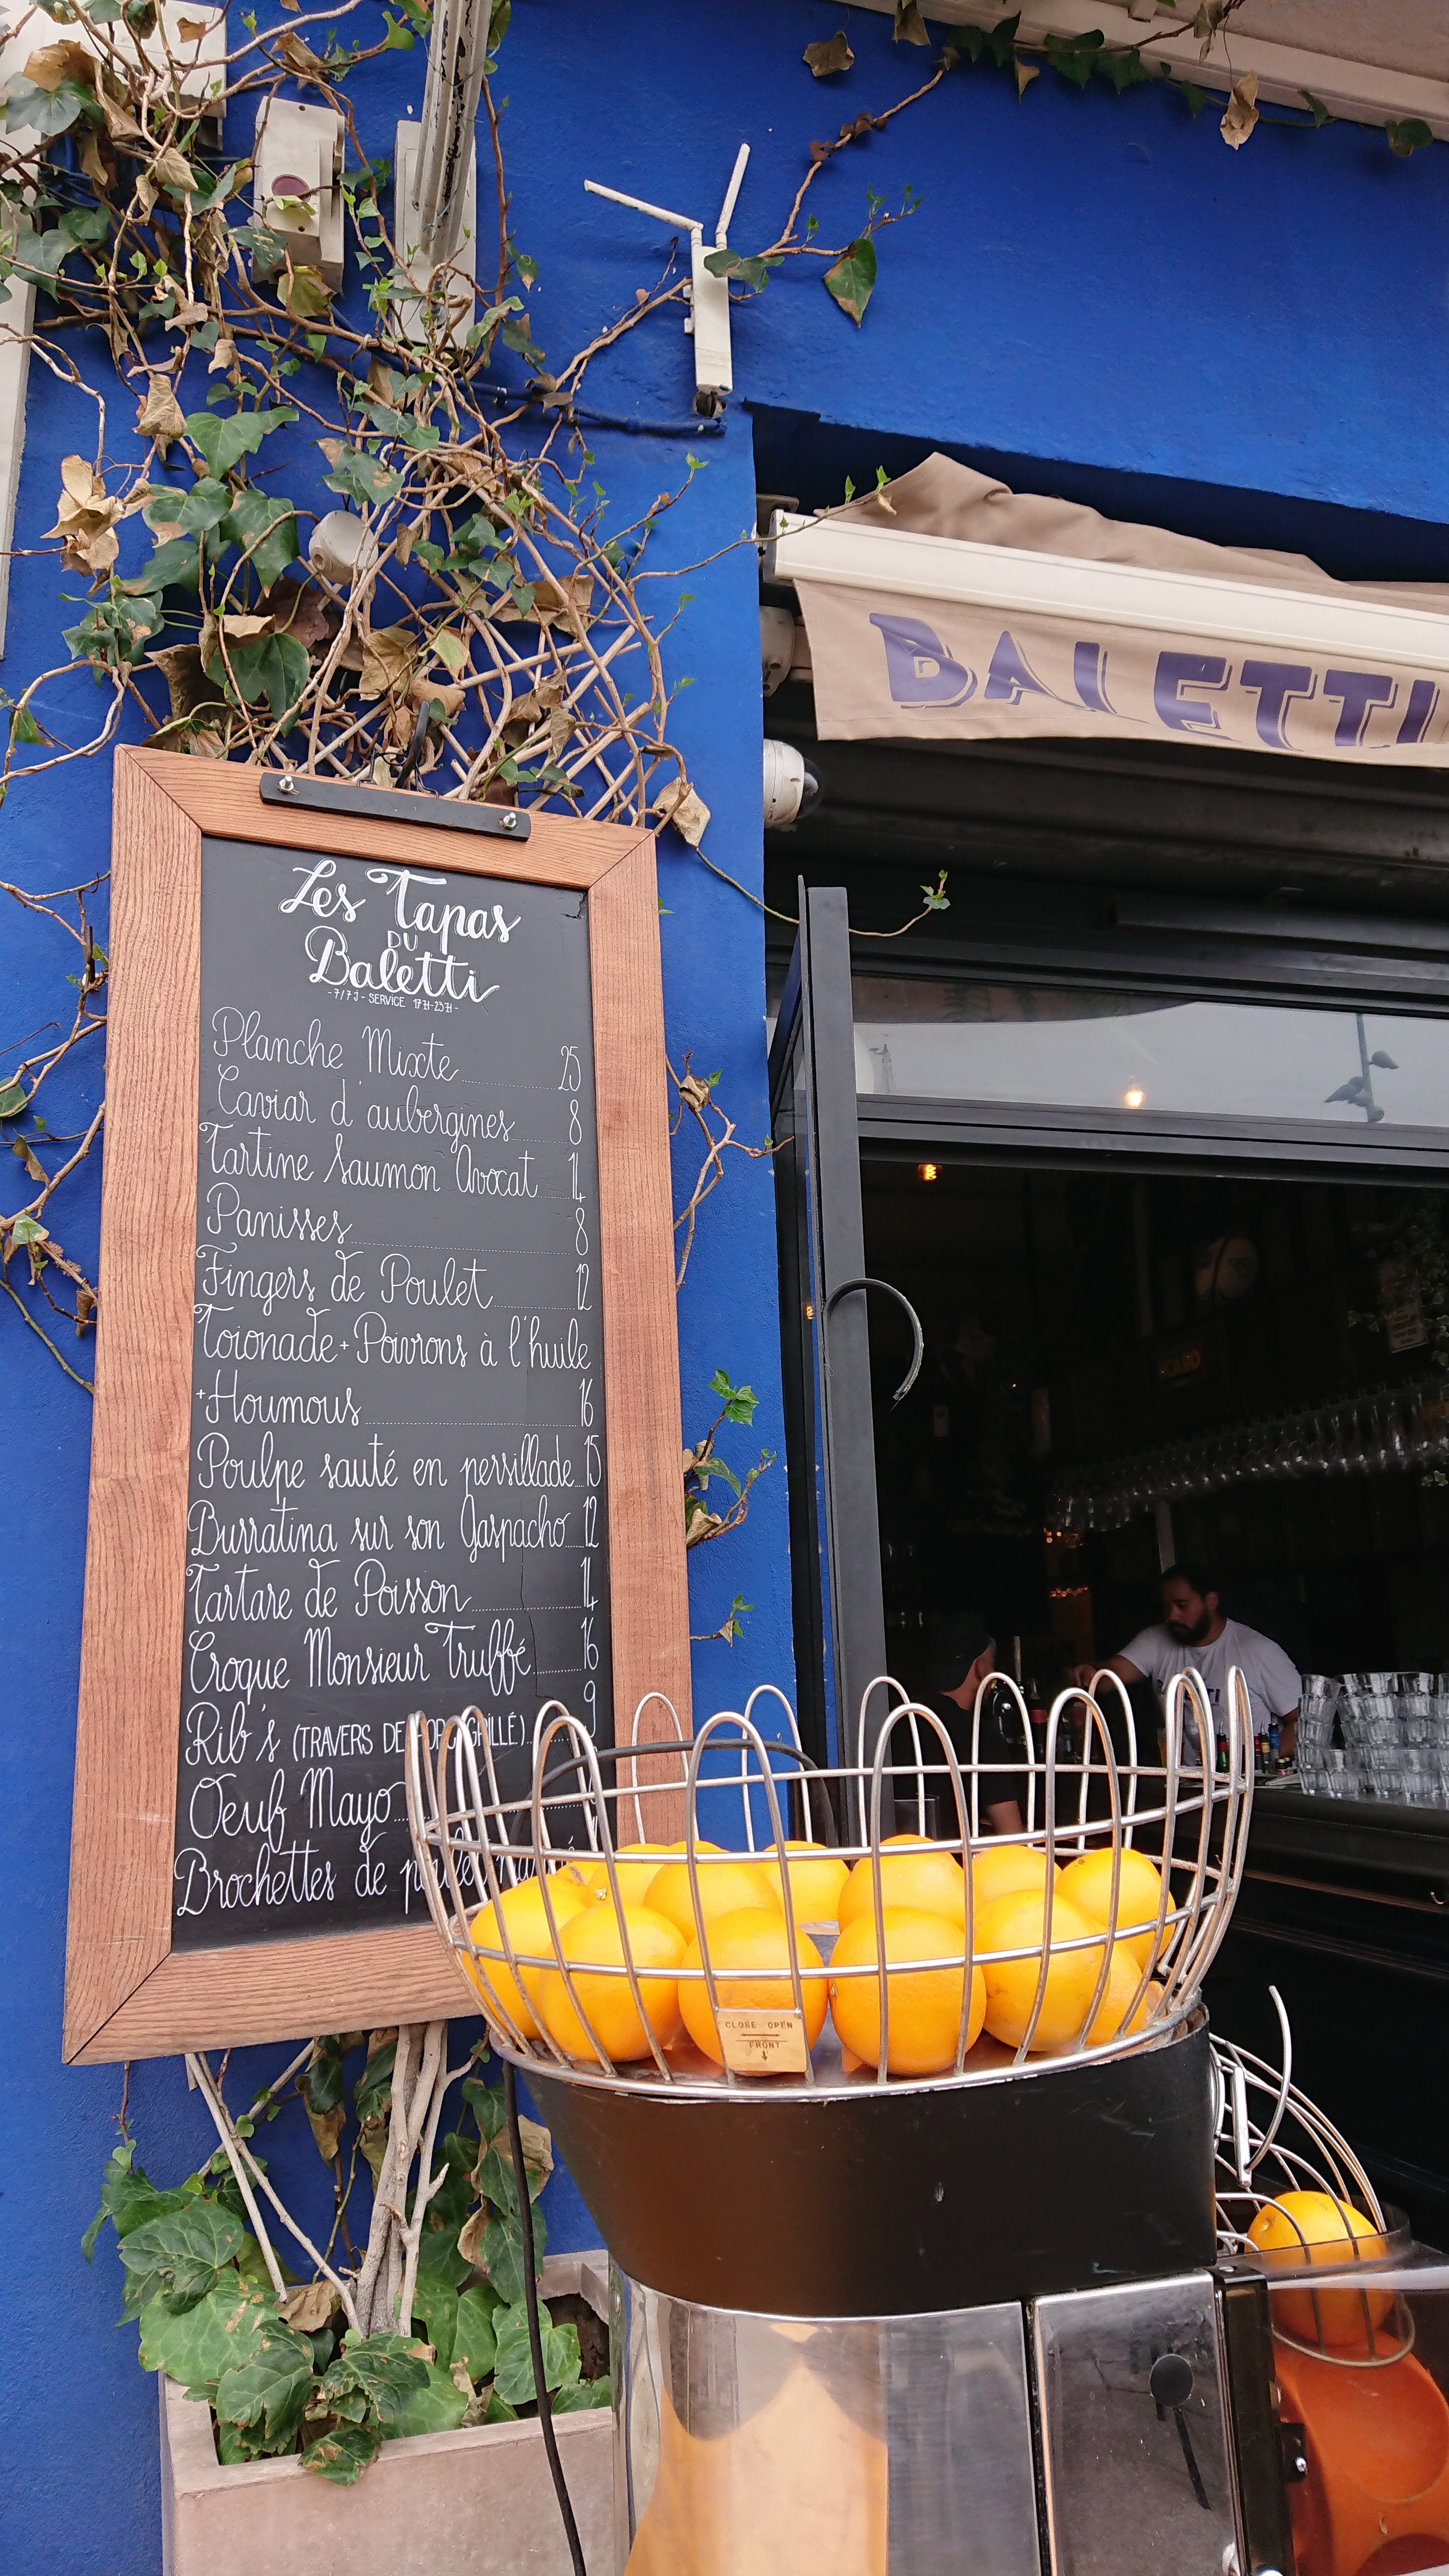 BALETTI
Les Tapas
DU
Baletti
-7/7J- SERVICE 17H-23H-
Planche Mixte 25
Caviar d'aubergines 8
Tartine Saumon Avocat 14
Panisses 8
Fingers de Poulet 12
Toionade + Poivrons à l'huile
+ Houmous 16
Poulpe sauté en persillade 15
Burratina sur son Gaspacho 12
Tartare de Poisson 14
Croque Monsieur Truffé 16
Rib's (TRAVERS DE PORC GRILLÉ) 9
Oeuf Mayo
Brochettes de poulet
CLOSE OPEN
FRONT